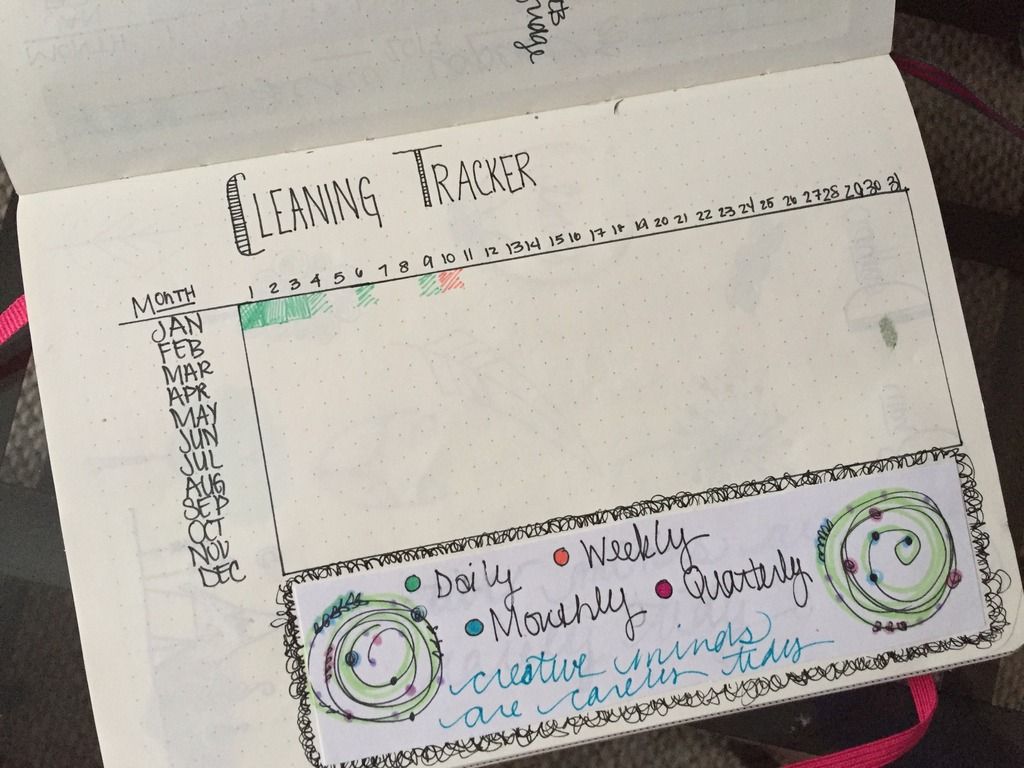 udge
CLEANING TRACKER
MONTH 1 2 3 4 5 6 7 8 9 10 11 12 13 14 15 16 17 18 19 20 21 22 23 24 25 26 27 28 29 30 31
JAN
FEB
MAR
APR
MAY
JUN
JUL
AUG
SEP
OCT
NOV
DEC
Daily Weekly
Monthly Quarterly
creative minds
are tidy